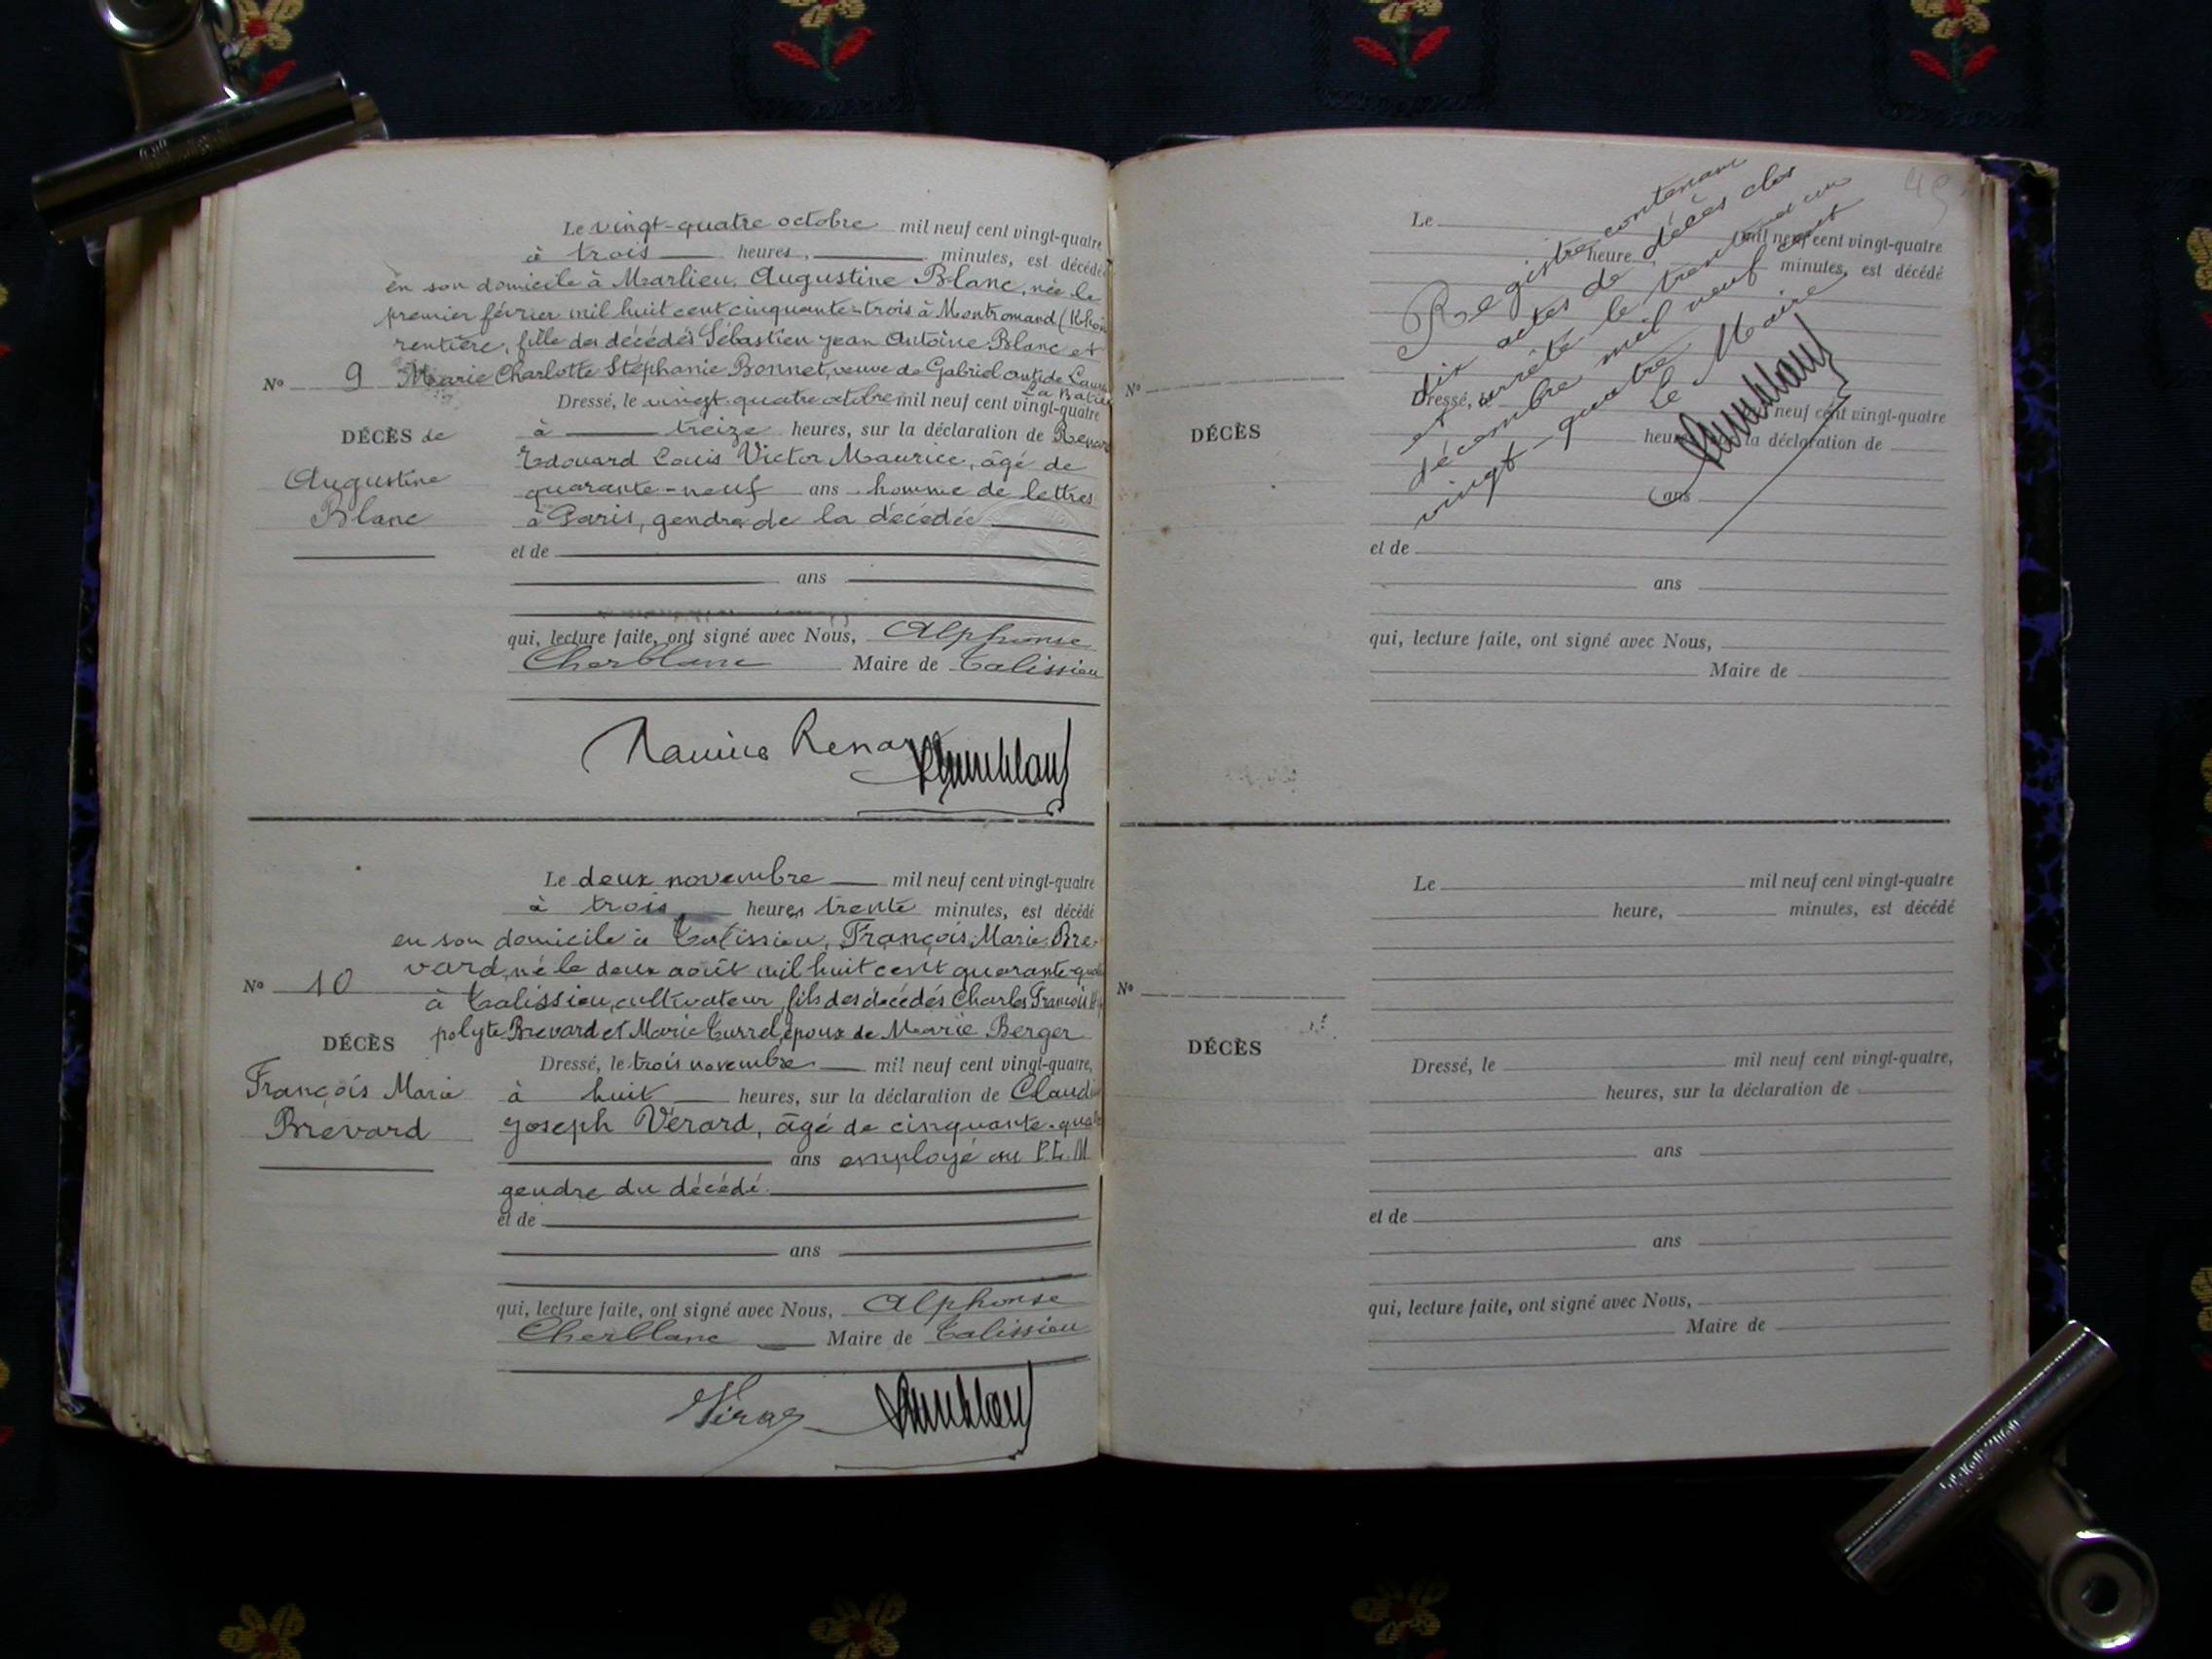 Le vingt-quatre octobre mil neuf cent vingt-quatre
à trois heures, minutes, est décédée
en son domicile à Marlieu, Augustine Blanc, née le
premier février mil huit cent cinquante-trois à Montromand (Rhôn
rentière, fille des décédés Sébastien Jean Antoine Blanc et
Nº 9 Marie Charlotte Stéphanie Bonnet, veuve de Gabriel
La Batie
Dressé, le vingt-quatre octobre mil neuf cent vingt-quatre
DÉCÈS de
à treize heures, sur la déclaration de Renard
Edouard Louis Victor Maurice, âgé de
Augustine
quarante-neuf ans homme de lettres
Blanc
à Paris, gendre de la décédée
et de
ans
qui, lecture faite, ont signé avec Nous, Alphonse
Cherblanc Maire de Talissieu
Maurice Renard
Le deux novembre mil neuf cent vingt-quatre
à trois heures trente minutes, est décédé
en son domicile à Talissieu, François Marie Bre-
vard, né le deux août mil huit cent quarante-qua
Nº 10
à Talissieu, cultivateur, fils des décédés Charles François Hip
polyte Brevard et Marie Turrel, époux de Marie Berger
DÉCÈS
Dressé, le trois novembre mil neuf cent vingt-quatre,
François Marie
à huit heures, sur la déclaration de Claud
Brevard
Joseph Vérard, âgé de cinquante-qua
ans employé au P.L.M
gendre du décédé.
et de
ans
qui, lecture faite, ont signé avec Nous, Alphonse
Cherblanc Maire de Talissieu
49
Registre contenant
dix actes de décès clos
et arrêté le trente et un
décembre mil neuf cent
vingt-quatre
Le Maire
Le mil neuf cent vingt-quatre
heure, minutes, est décédé
Nº
Dressé, le neuf cent vingt-quatre
DÉCÈS
heures, la déclaration de
ans
et de
ans
qui, lecture faite, ont signé avec Nous,
Maire de
Le mil neuf cent vingt-quatre
heure, minutes, est décédé
Nº
DÉCÈS
Dressé, le mil neuf cent vingt-quatre,
heures, sur la déclaration de
ans
et de
ans
qui, lecture faite, ont signé avec Nous,
Maire de